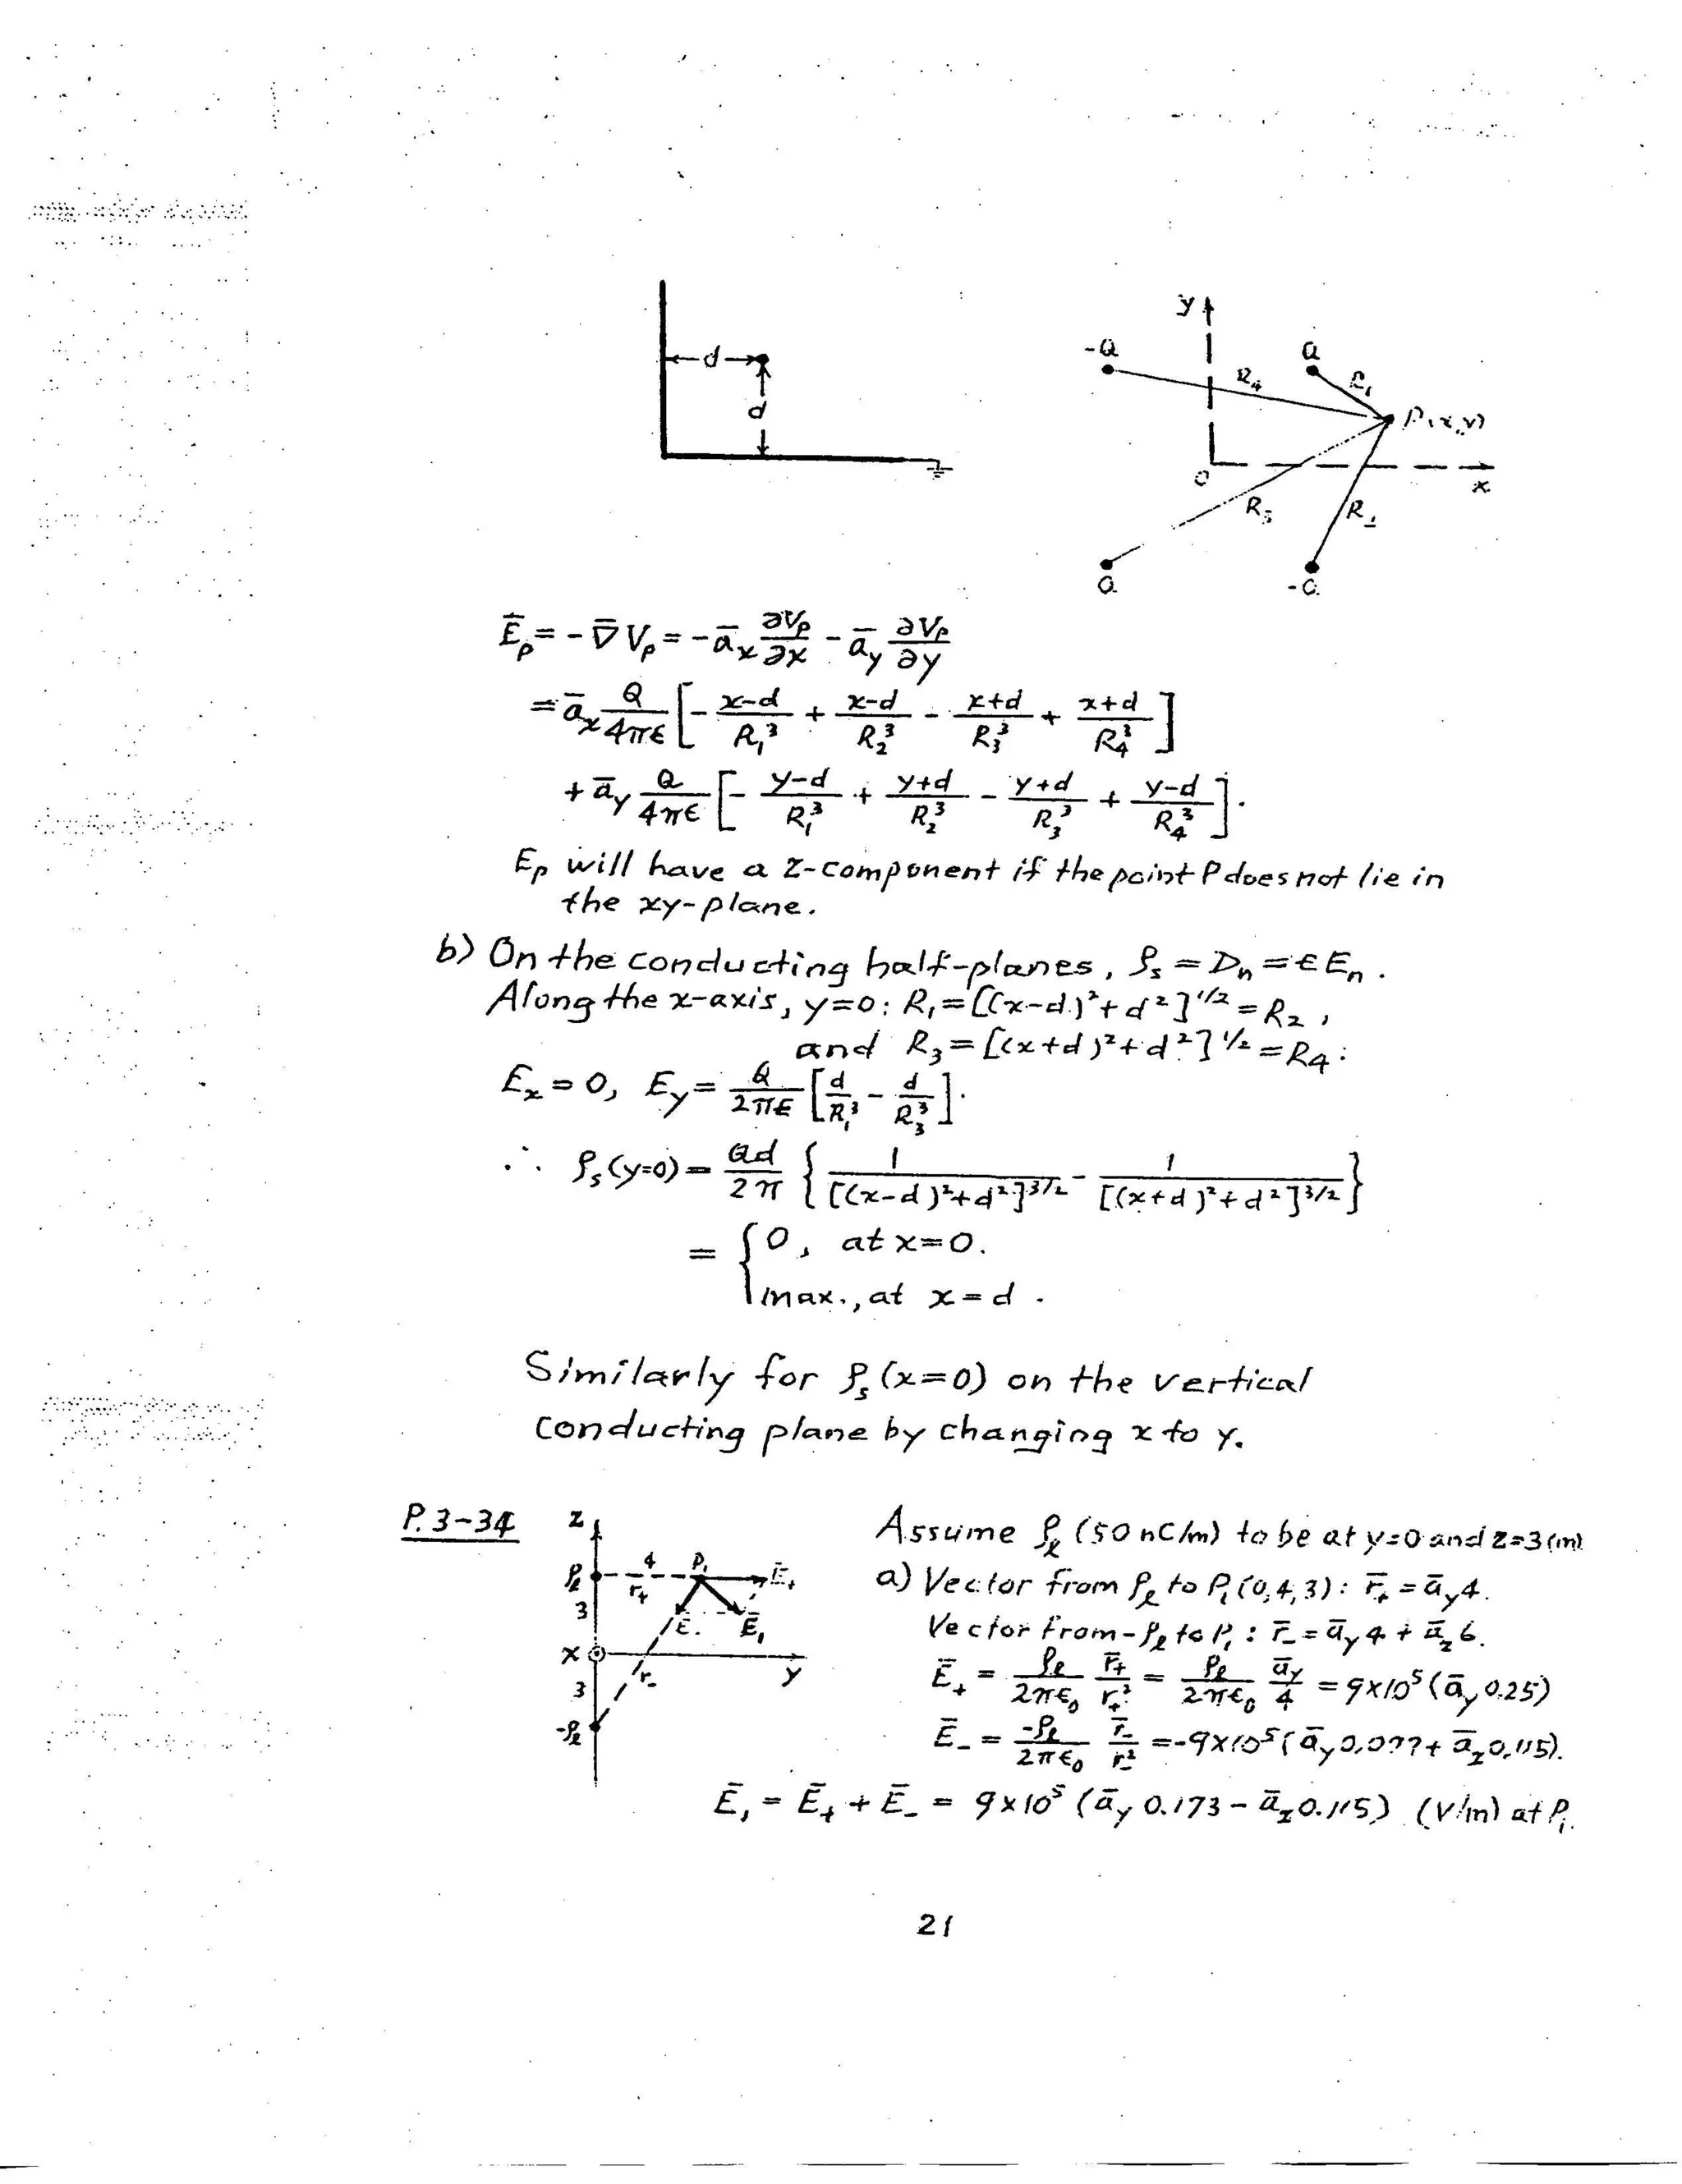 d
d
y
-Q
Q
R₄
R₁
P(x,y)
O
x
R₃
R₂
Q
-Q
Ēₚ = -∇̄Vₚ = -āₓ ∂Vₚ/∂x - ā_y ∂Vₚ/∂y
= āₓ Q/4πϵ [ - (x-d)/R₁³ + (x-d)/R₂³ - (x+d)/R₃³ + (x+d)/R₄³ ]
+ ā_y Q/4πϵ [ - (y-d)/R₁³ + (y+d)/R₂³ - (y+d)/R₃³ + (y-d)/R₄³ ].
Eₚ will have a z-component if the point P does not lie in
the xy-plane.
b) On the conducting half-planes, ρₛ = Dₙ = ϵEₙ.
Along the x-axis, y=0: R₁=[(x-d)²+d²]^{1/2} = R₂,
and R₃=[(x+d)²+d²]^{1/2} = R₄:
Eₓ = 0, E_y = Q/2πϵ [ d/R₁³ - d/R₃³ ].
∴ ρₛ(y=0) = Qd/2π { 1/[(x-d)²+d²]^{3/2} - 1/[(x+d)²+d²]^{3/2} }
= { 0, at x=0.
max., at x=d.
Similarly for ρₛ(x=0) on the vertical
conducting plane by changing x to y.
P. 3-34
z
ρ_ℓ
4
r̄₊
P₁
Ē₊
3
Ē₋
Ē₁
x
y
3
r̄₋
-ρ_ℓ
Assume ρ_ℓ (50 nC/m) to be at y=0 and z=3(m)
a) Vector from ρ_ℓ to P₁(0,4,3): r̄₊ = ā_y4.
Vector from -ρ_ℓ to P₁: r̄₋ = ā_y4 + ā_z6.
Ē₊ = ρ_ℓ/2πϵ₀ r̄₊/r₊² = ρ_ℓ/2πϵ₀ ā_y/4 = 9×10⁵(ā_y 0.25)
Ē₋ = -ρ_ℓ/2πϵ₀ r̄₋/r₋² = -9×10⁵(ā_y 0.077 + ā_z 0.115).
Ē₁ = Ē₊ + Ē₋ = 9×10⁵ (ā_y 0.173 - ā_z 0.115) (V/m) at P₁.
21